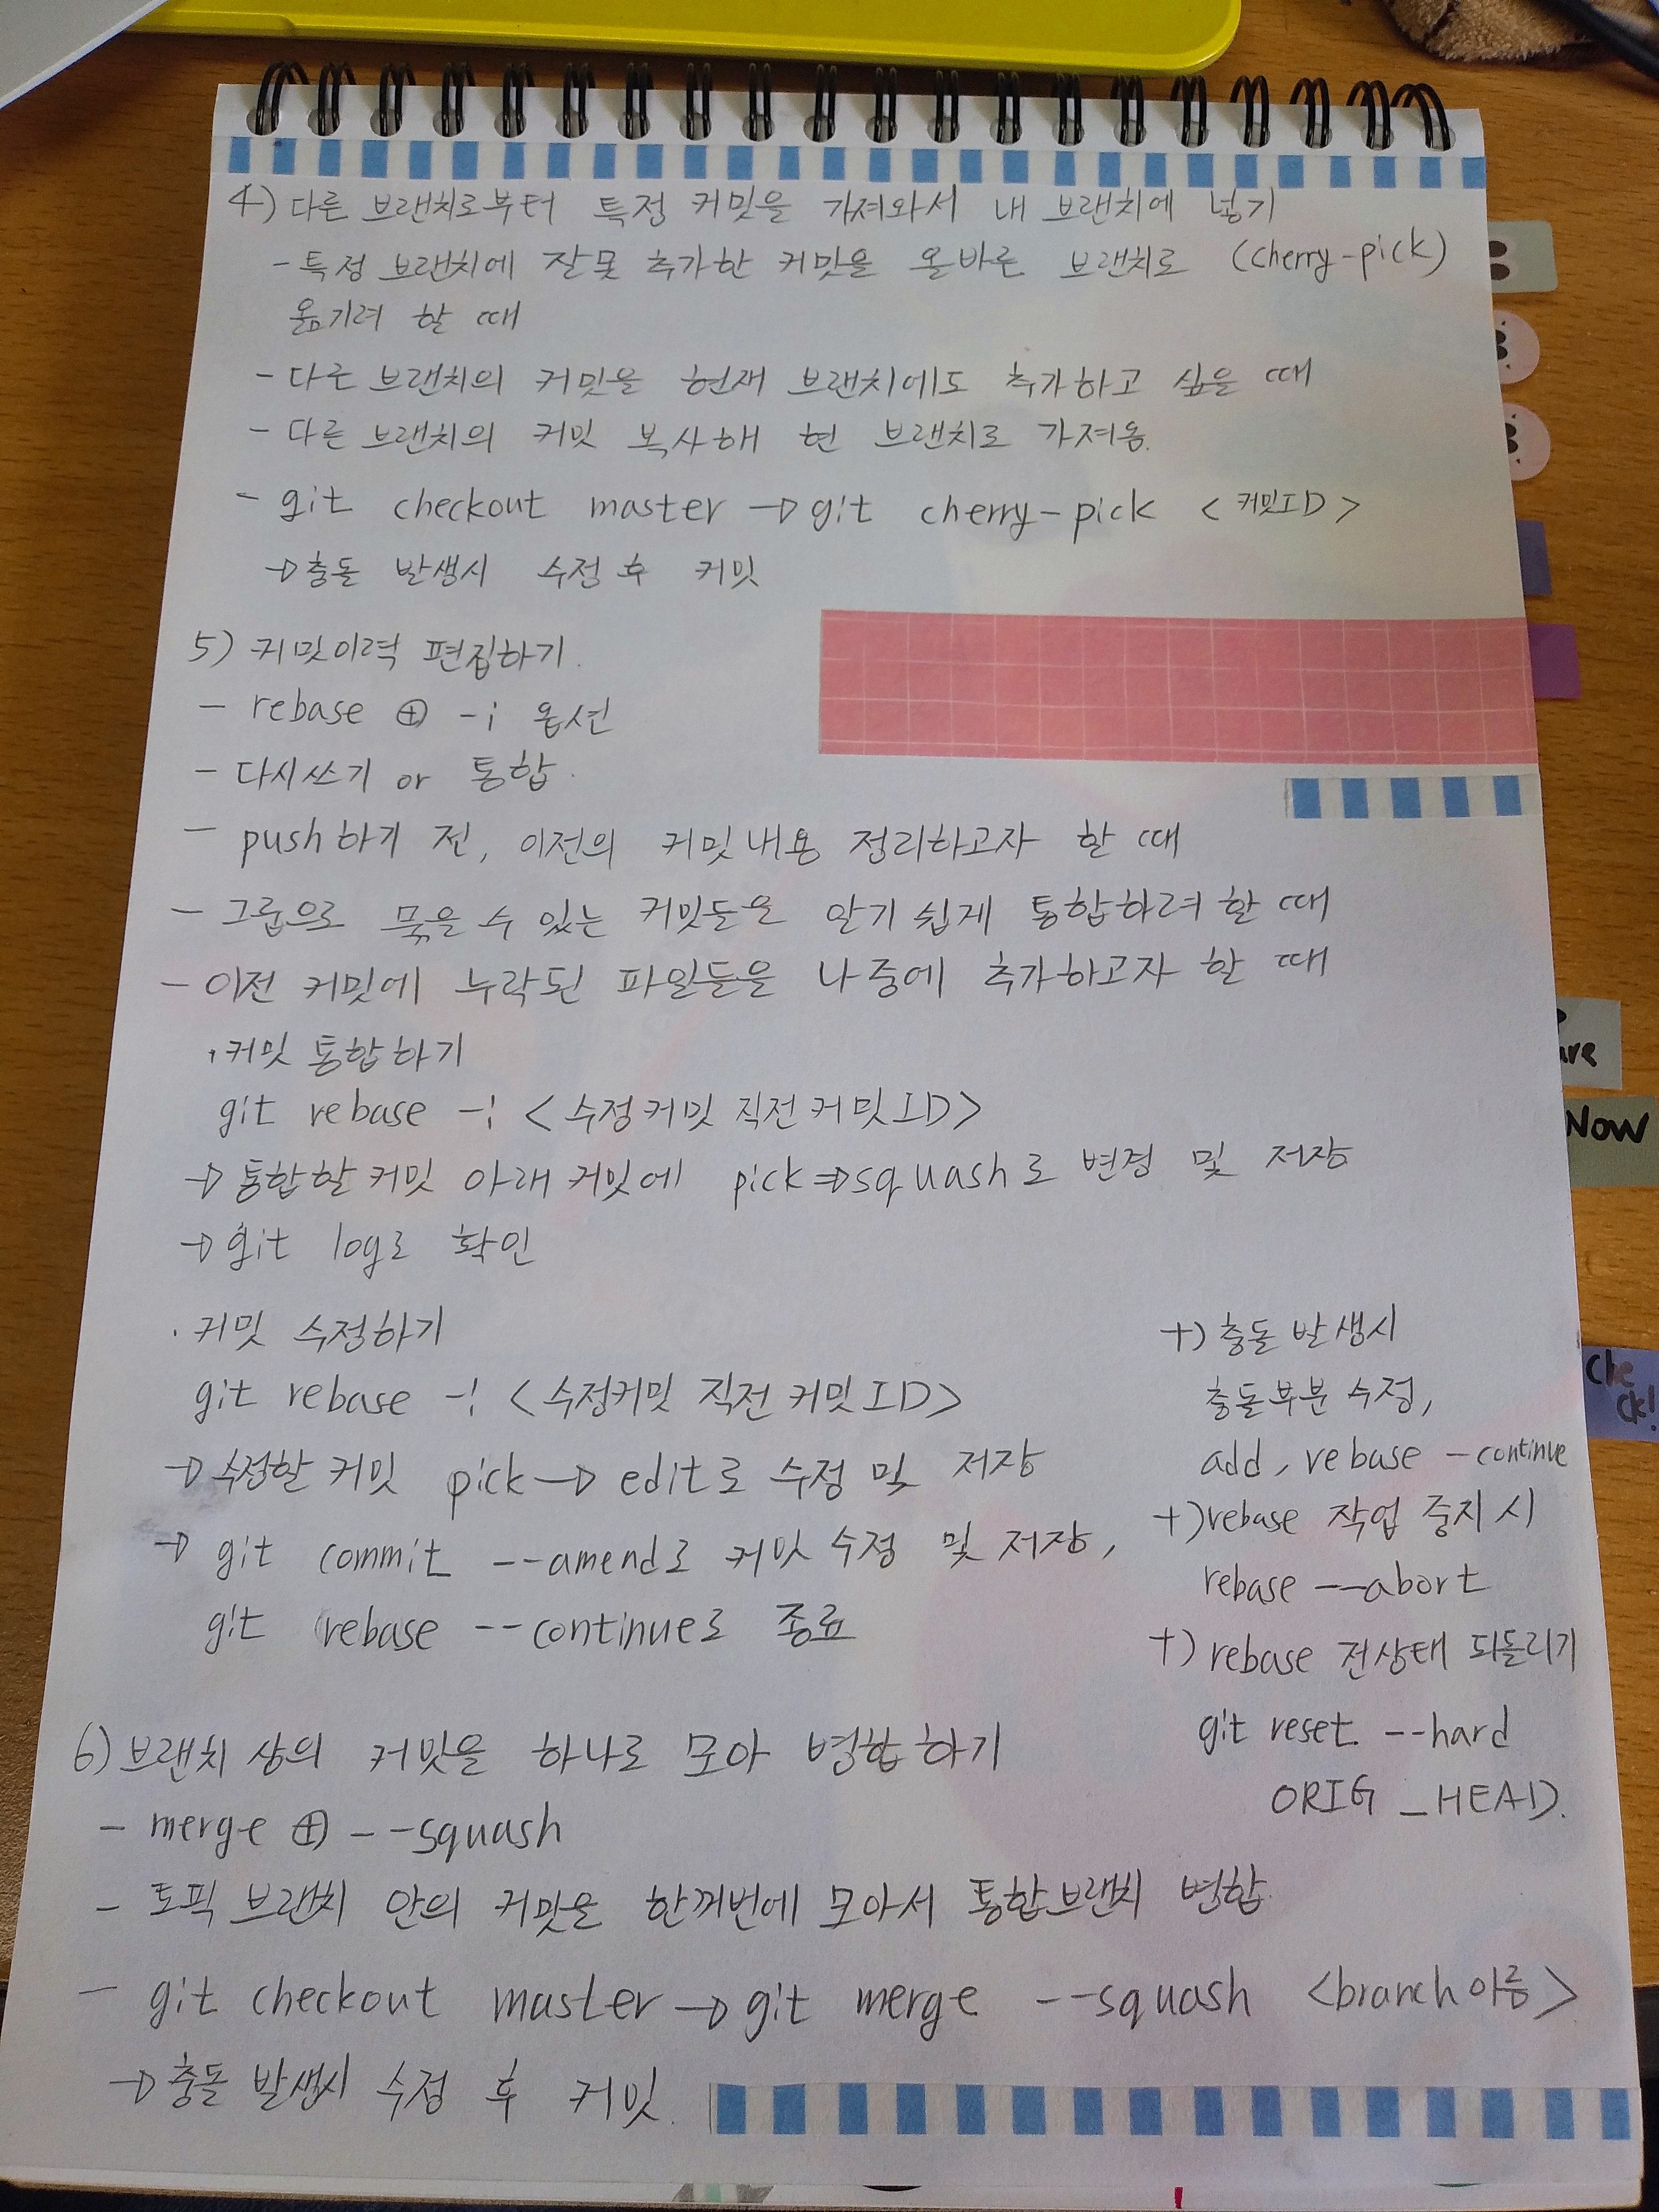 4) 다른 브랜치로부터 특정 커밋을 가져와서 내 브랜치에 넣기
- 특정 브랜치에 잘못 추가한 커밋을 올바른 브랜치로 (cherry-pick)
옮기려 할 때
- 다른 브랜치의 커밋을 현재 브랜치에도 추가하고 싶을 때
- 다른 브랜치의 커밋 복사해 현 브랜치로 가져옴.
- git checkout master → git cherry-pick <커밋ID>
→ 충돌 발생시 수정 후 커밋
5) 커밋이력 편집하기.
- rebase ⊕ -i 옵션
- 다시쓰기 or 통합.
- push하기 전, 이전의 커밋내용 정리하고자 할 때
- 그룹으로 묶을 수 있는 커밋들을 알기 쉽게 통합하려 할 때
- 이전 커밋에 누락된 파일들을 나중에 추가하고자 할 때
· 커밋 통합하기
git rebase -i <수정커밋 직전커밋ID>
→ 통합할 커밋 아래 커밋에 pick⇒squash로 변경 및 저장
→ git log로 확인
· 커밋 수정하기
git rebase -i <수정커밋 직전커밋ID>
→ 수정할 커밋 pick → edit로 수정 및 저장
→ git commit --amend로 커밋 수정 및 저장,
git rebase --continue로 종료
+) 충돌 발생시
충돌부분 수정,
add, rebase -continue
+) rebase 작업 중지 시
rebase --abort
+) rebase 전상태 되돌리기
git reset --hard
ORIG_HEAD.
6) 브랜치 상의 커밋을 하나로 모아 병합하기
- merge ⊕ --squash
- 토픽 브랜치 안의 커밋을 한꺼번에 모아서 통합브랜치 병합.
- git checkout master → git merge --squash <branch이름>
→ 충돌 발생시 수정 후 커밋.
Now
Che
ck!